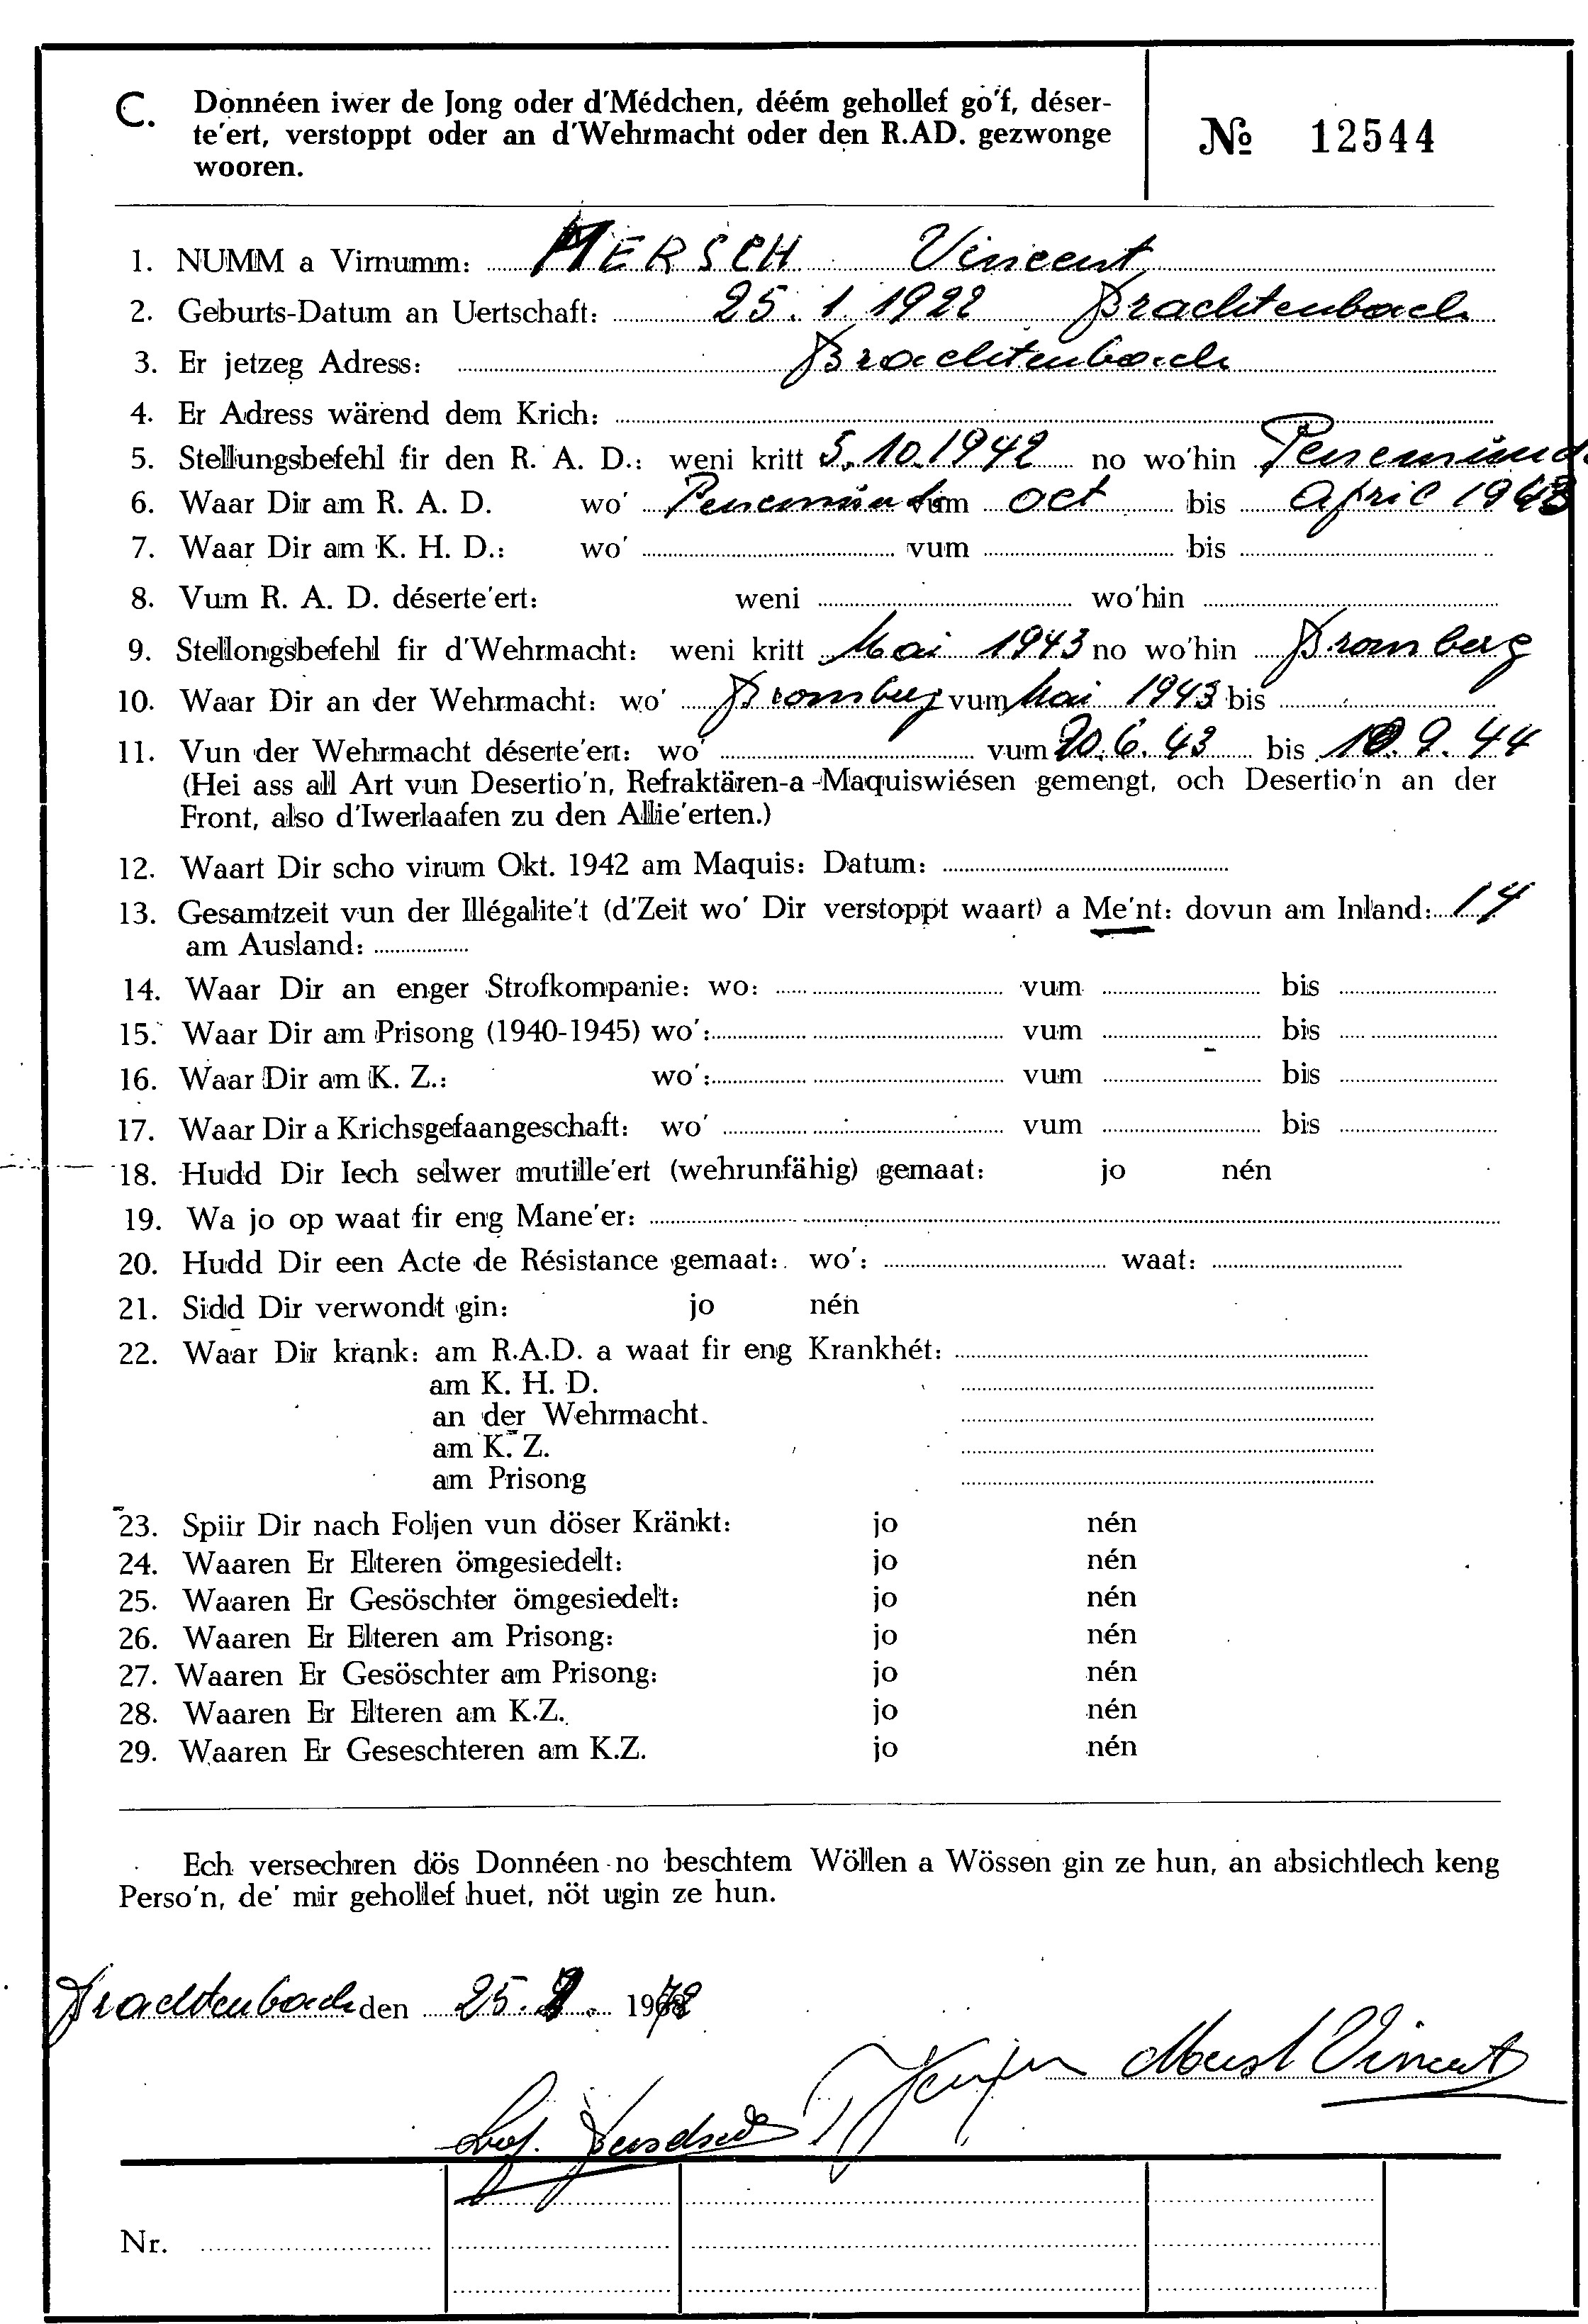 C. Donnéen iwer de Jong oder d'Médchen, déém gehollef go'f, déser-
te'ert, verstoppt oder an d'Wehrmacht oder den R.AD. gezwonge
wooren.
№ 12544
1. NUMM a Virnumm: MERSCH Vincent
2. Geburts-Datum an Uertschaft: 25. 1. 1922 Brachtenbach
3. Er jetzeg Adress: Brachtenbach
4. Er Adress wärend dem Krich:
5. Stellungsbefehl fir den R. A. D.: weni kritt 5.10.1942 no wo'hin Penemünde
6. Waar Dir am R. A. D. wo' Penemünde vum oct bis April 1943
7. Waar Dir am K. H. D.: wo' vum bis
8. Vum R. A. D. déserte'ert: weni wo'hin
9. Stellongsbefehl fir d'Wehrmacht: weni kritt Mai 1943 no wo'hin Bromberg
10. Waar Dir an der Wehrmacht: wo' Bromberg vum Mai 1943 bis
11. Vun der Wehrmacht déserte'ert: wo' vum 20.6.43 bis 10.9.44
(Hei ass all Art vun Desertio'n, Refraktären-a-Maquiswiésen gemengt, och Desertio'n an der
Front, also d'Iwerlaafen zu den Allie'erten.)
12. Waart Dir scho virum Okt. 1942 am Maquis: Datum:
13. Gesamtzeit vun der Illégalite't (d'Zeit wo' Dir verstoppt waart) a Me'nt: dovun am Inland: 14
am Ausland:
14. Waar Dir an enger Strofkompanie: wo: vum bis
15. Waar Dir am Prisong (1940-1945) wo': vum bis
16. Waar Dir am K. Z.: wo': vum bis
17. Waar Dir a Krichsgefaangeschaft: wo' vum bis
18. Hudd Dir Iech selwer mutille'ert (wehrunfähig) gemaat: jo nén
19. Wa jo op waat fir eng Mane'er:
20. Hudd Dir een Acte de Résistance gemaat: wo': waat:
21. Sidd Dir verwondt gin: jo nén
22. Waar Dir krank: am R.A.D. a waat fir eng Krankhét:
am K. H. D.
an der Wehrmacht.
am K. Z.
am Prisong
23. Spiir Dir nach Foljen vun döser Kränkt: jo nén
24. Waaren Er Elteren ömgesiedelt: jo nén
25. Waaren Er Gesöschter ömgesiedelt: jo nén
26. Waaren Er Elteren am Prisong: jo nén
27. Waaren Er Gesöschter am Prisong: jo nén
28. Waaren Er Elteren am K.Z. jo nén
29. Waaren Er Geseschteren am K.Z. jo nén
Ech versechren dös Donnéen no beschtem Wöllen a Wössen gin ze hun, an absichtlech keng
Perso'n, de' mir gehollef huet, nöt ugin ze hun.
Brachtenbach den 25. 1972
Mersch Vincent
Nr.